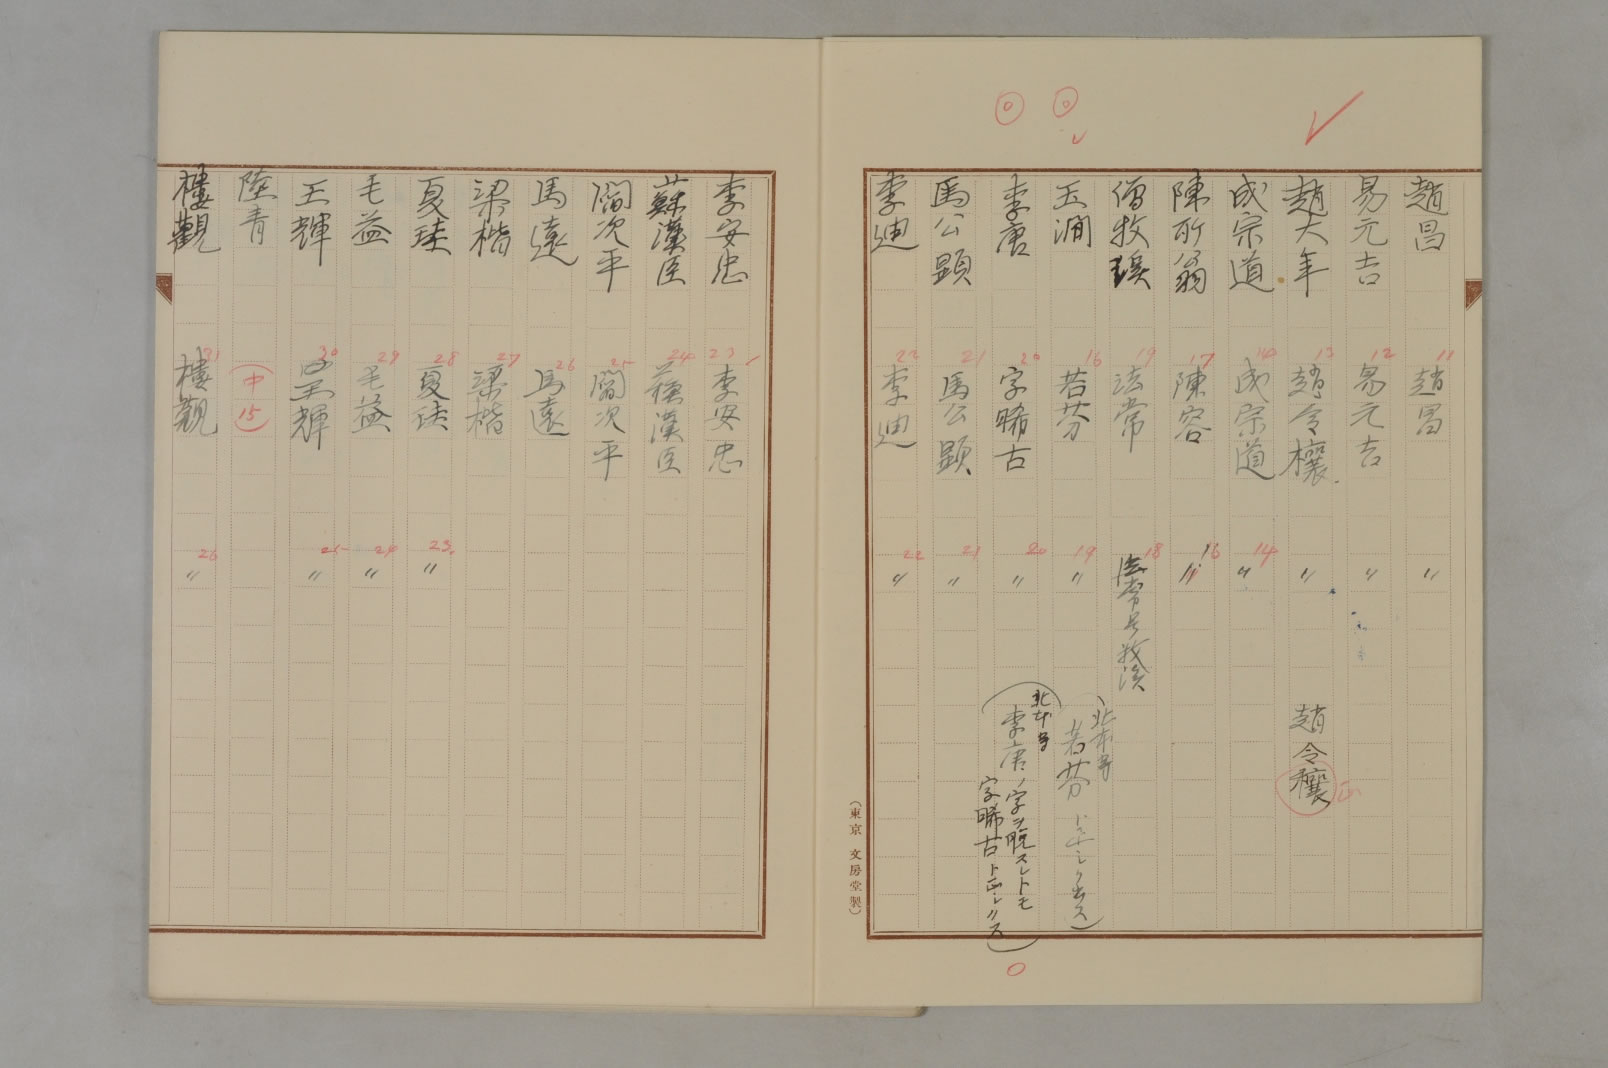 趙昌 11 趙昌 〃
易元吉 12 易元吉 〃
趙大年 13 趙令欀 〃 趙令穰 正
成宗道 14 成宗道 14 〃
陳所翁 17 陳容 16 〃
僧牧溪 19 法常 18 法常号牧溪
玉澗 16 若芬 19 〃 北本号
若芬
李唐 20 字晞古 20 〃 北本号
李唐ノ字ヲ脱スレトモ
字晞古ト正シクス
馬公顕 21 馬公顕 21 〃
李迪 22 李迪 22 〃
(東京 文房堂製)
李安忠 23 李安忠
蘇漢臣 24 蘇漢臣
閻次平 25 閻次平
馬遠 26 馬遠
梁楷 27 梁楷
夏珪 28 夏珪 23 〃
毛益 29 毛益 24 〃
王輝 30 王輝 25 〃
陸青 (中15)
樓觀 31 樓觀 26 〃